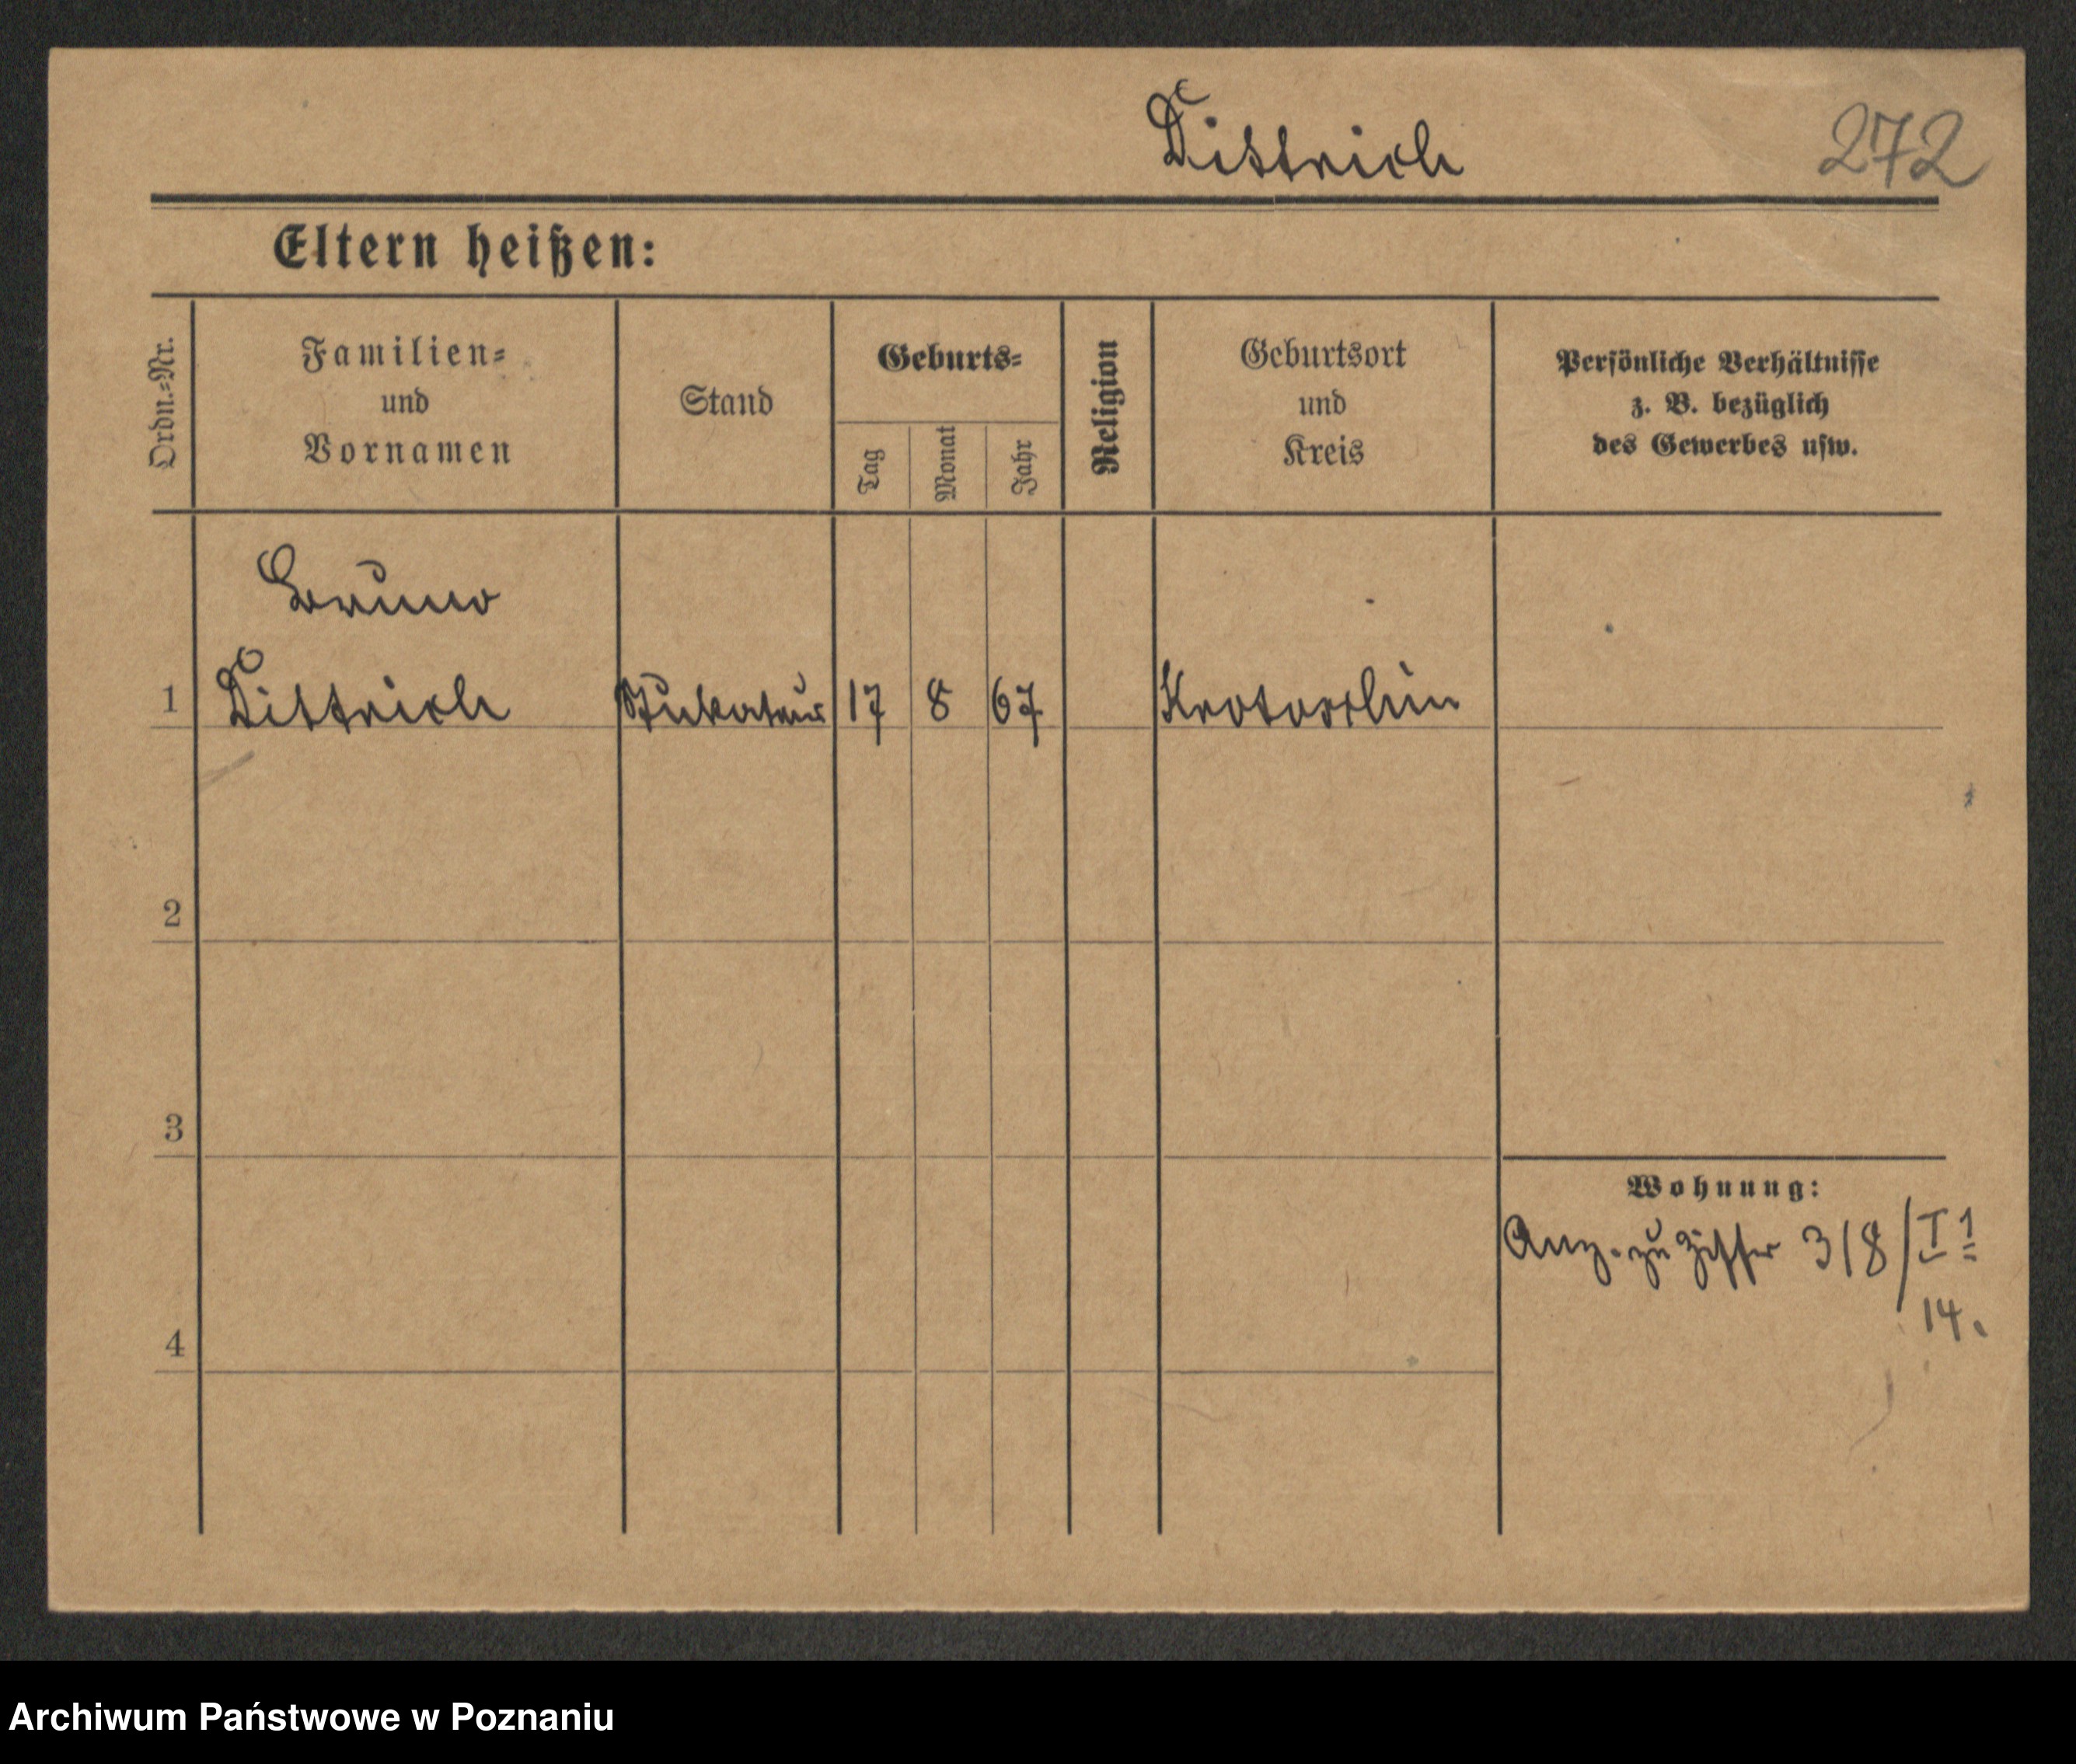 Dittrich 272
Eltern heißen:
Ordn.=Nr.
Familien=
und
Vornamen
Stand
Geburts=
Tag
Monat
Jahr
Religion
Geburtsort
und
Kreis
Persönliche Verhältnisse
z. B. bezüglich
des Gewerbes usw.
Bruno
1 Dittrich Stukateur 17 8 67 Krotoschin
2
3
Wohnung:
Anz. zu Ziffer 318/I 1
14.
4
Archiwum Państwowe w Poznaniu